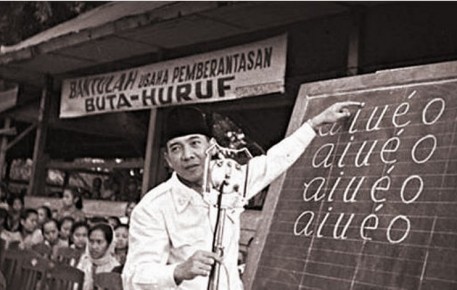 BANTULAH USAHA PEMBERANTASAN
BUTA-HURUF
a i u é o
a i u é o
a i u é o
a i u é o